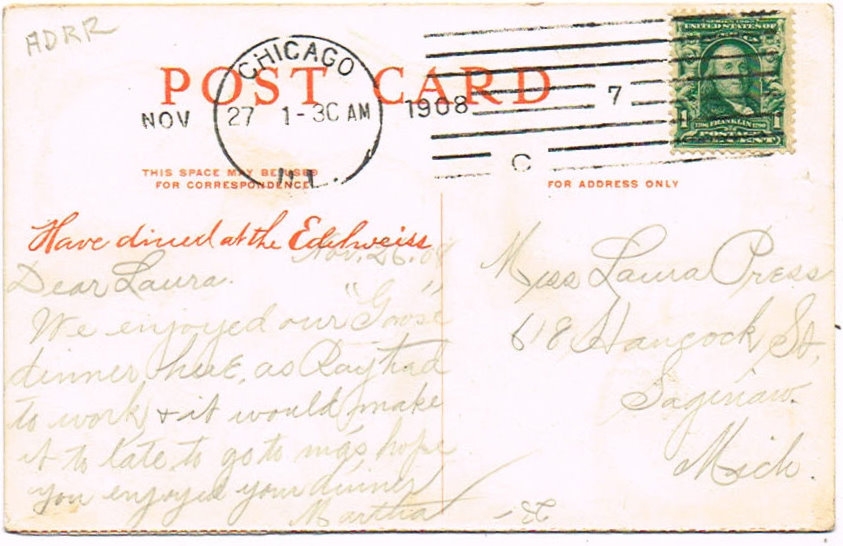 ADRR
POST CARD
CHICAGO
NOV 27 1-30 AM 1908 7
ILL.
C
SERIES 1902
UNITED STATES OF
1706 FRANKLIN 1790
1 POSTAGE 1
CENT
THIS SPACE MAY BE USED
FOR CORRESPONDENCE
FOR ADDRESS ONLY
Have dined at the Edelweiss
Nov. 26. 08
Dear Laura.
We enjoyed our "Goose"
dinner here, as Ray had
to work & it would make
it to late to go to mas hope
you enjoyed your dinner
Martha
Miss Laura Press
618 Hancock St,
Saginaw.
Mich.